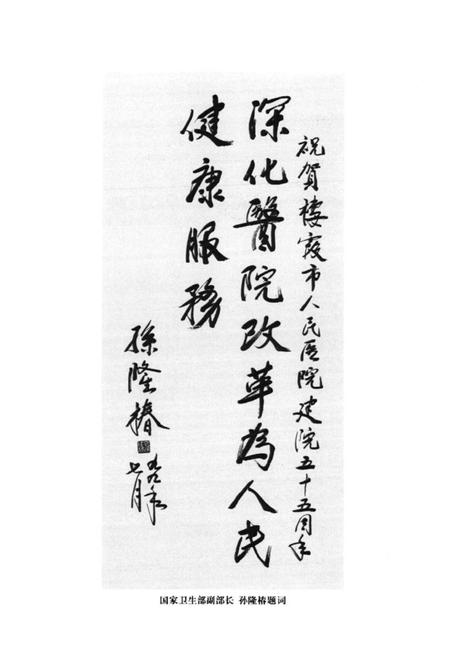 祝贺棲霞市人民医院建院五十五周年
深化醫院改革為人民
健康服務
孫隆椿
九九年
七月
国家卫生部副部长 孙隆椿题词